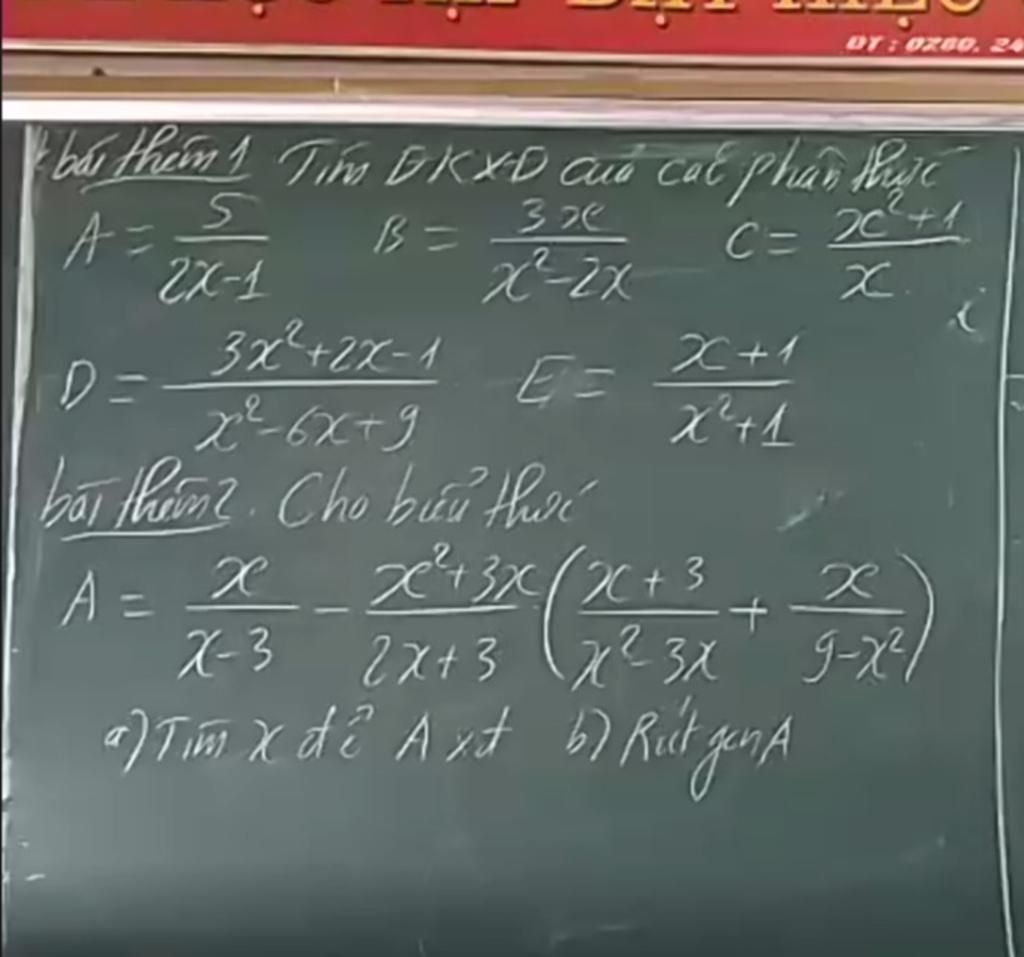 ĐT : 0280. 24
bài thêm 1 Tìm ĐKXĐ của các phân thức
A = \frac{5}{2x-1} B = \frac{3x}{x^2-2x} C = \frac{x^2+1}{x}
D = \frac{3x^2+2x-1}{x^2-6x+9} E = \frac{x+1}{x^2+1}
bài thêm 2. Cho biểu thức
A = \frac{x}{x-3} - \frac{x^2+3x}{2x+3} \left( \frac{x+3}{x^2-3x} + \frac{x}{9-x^2} \right)
a) Tìm x để A xđ b) Rút gọn A